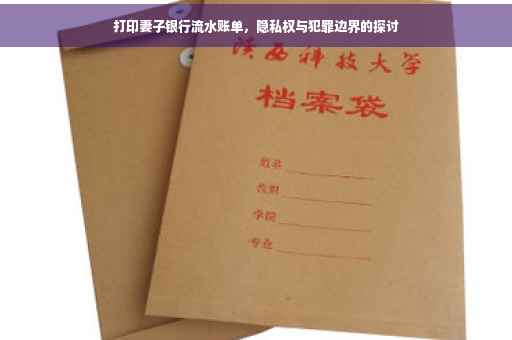 打印妻子银行流水账单，隐私权与犯罪边界的探讨
陕西科技大学
档案袋
姓名
学院
专业